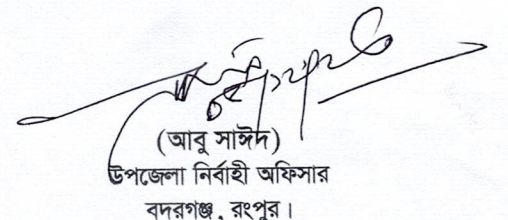 (আবু সাঈদ)
উপজেলা নির্বাহী অফিসার
বদরগঞ্জ, রংপুর।